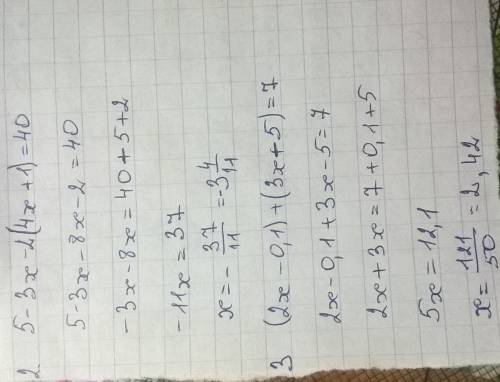 2 5-3x-2(4x+1)=40
5-3x-8x-2=40
-3x-8x=40+5+2
-11x=37
x=-37/11=-3 4/11
3 (2x-0,1)+(3x+5)=7
2x-0,1+3x-5=7
2x+3x=7+0,1+5
5x=12,1
x=121/50=2,42